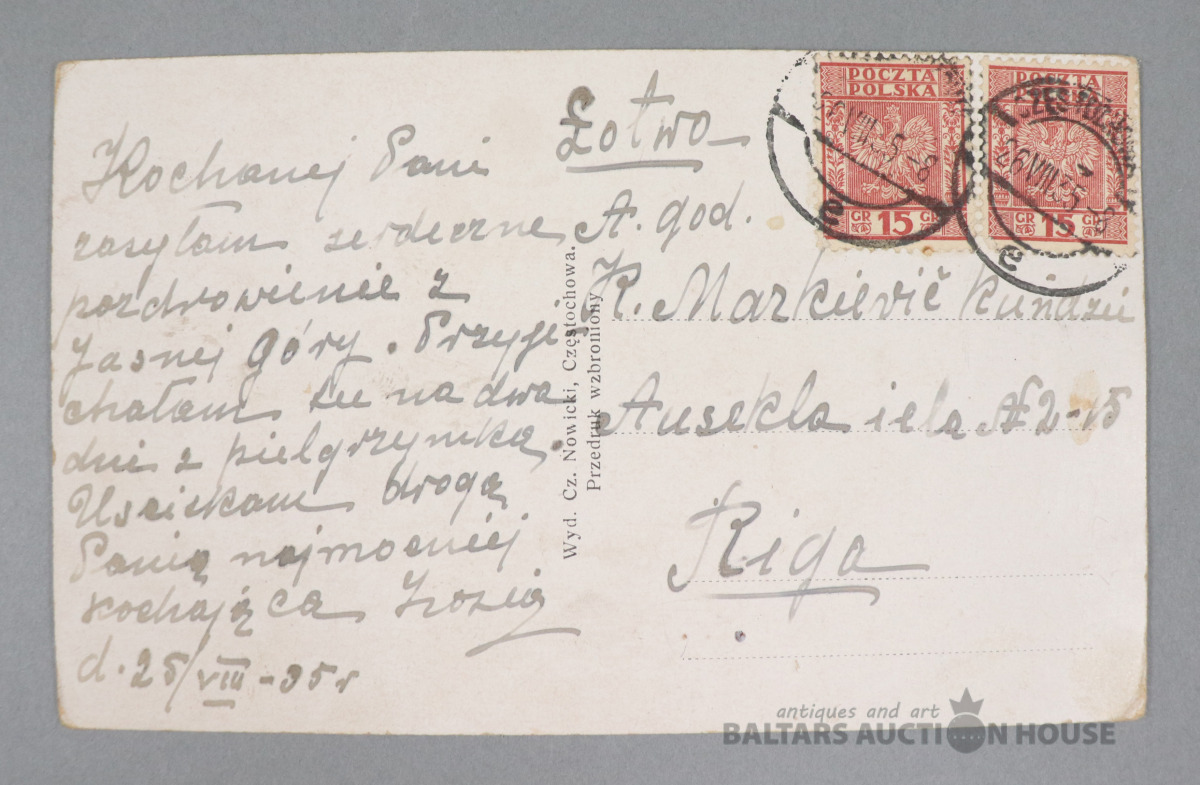 Kochanej Pani
zasyłam serdeczne
pozdrowienie z
Jasnej Góry. Przyje
chałam tu na dwa
dni z pielgrzymką.
Usciskam drogą
Panią najmocniej
kochająca Zosia
d. 25/VIII-35 r
Wyd. Cz. Nowicki, Częstochowa.
Przedruk wzbroniony
Łotwa
A. god.
K. Markievič kundzei
Ausekla iela № 2-15
Riga
POCZTA
POLSKA
GR 15 GR
POCZTA
GR 15 GR
26 VIII 35
antiques and art
BALTARS AUCTION HOUSE